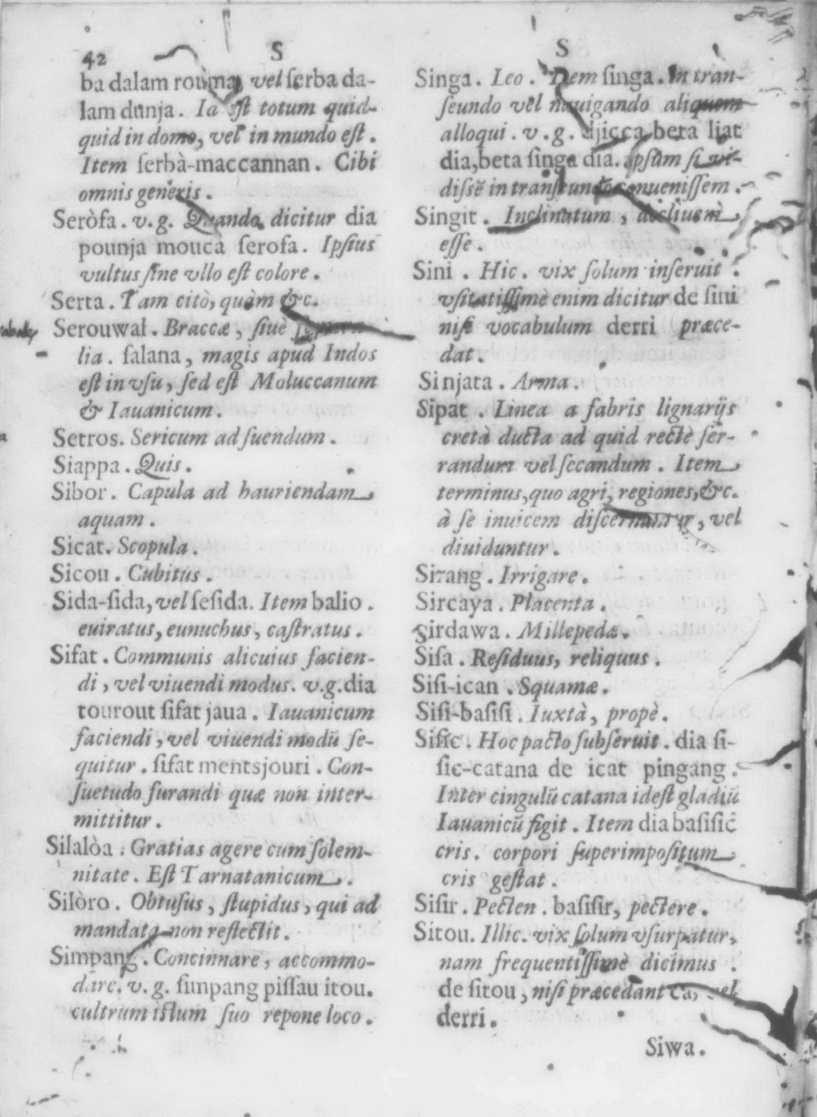 42
S
ba dalam rouma, vel serba da-
lam dunja. Ia est totum quid-
quid in domo, vel in mundo est.
Item serbà-maccannan. Cibi
omnis generis.
Seròfa. v.g. Quando dicitur dia
pounja mouca serofa. Ipsius
vultus sine vllo est colore.
Serta. Tam citò, quàm &c.
Serouwal. Braccæ, siue
lia. salana, magis apud Indos
est in vsu, sed est Moluccanum
& Iauanicum.
Setros. Sericum ad suendum.
Siappa. Quis.
Sibor. Capula ad hauriendam
aquam.
Sicat. Scopula.
Sicou. Cubitus.
Sida-sida, vel sesida. Item balio.
euiratus, eunuchus, castratus.
Sifat. Communis alicuius facien-
di, vel viuendi modus. v.g. dia
tourout sifat jaua. Iauanicum
faciendi, vel viuendi modū se-
quitur. sifat mentsjouri. Con-
suetudo furandi quæ non inter-
mittitur.
Silalòa. Gratias agere cum solem-
nitate. Est Tarnatanicum.
Silòro. Obtusus, stupidus, qui ad
mandata non reflectit.
Simpang. Concinnare, accommo-
dare. v.g. simpang pissau itou.
cultrum istum suo repone loco.
S
Singa. Leo. Item singa. In tran-
seundo vel nauigando aliquem
alloqui. v.g. djicca beta liat
dia, beta singa dia. ipsum si vi-
dissē in transeundo conuenissem.
Singit. Inclinatum, decliuem
esse.
Sini. Hic. vix solum inseruit.
vsitatissimè enim dicitur de sini
nisi vocabulum derri præce-
dat.
Sinjata. Arma.
Sipat. Linea a fabris lignarijs
cretà ducta ad quid rectè ser-
randum vel secandum. Item
terminus, quo agri, regiones, &c.
à se inuicem discernuntur, vel
diuiduntur.
Sirang. Irrigare.
Sircaya. Placenta.
Sirdawa. Millepedæ.
Sisa. Residuus, reliquus.
Sisi-ican. Squamæ.
Sisi-basisi. Iuxtà, propè.
Sisic. Hoc pacto subseruit. dia si-
sic-catana de icat pingang.
Inter cingulū catana idest gladiū
Iauanicū figit. Item dia basisic
cris. corpori superimpositum
cris gestat.
Sisir. Pecten. basisir, pectere.
Sitou. Illic. vix solum vsurpatur,
nam frequentissimè dicimus.
de sitou, nisi præcedant ca, vel
derri.
Siwa.